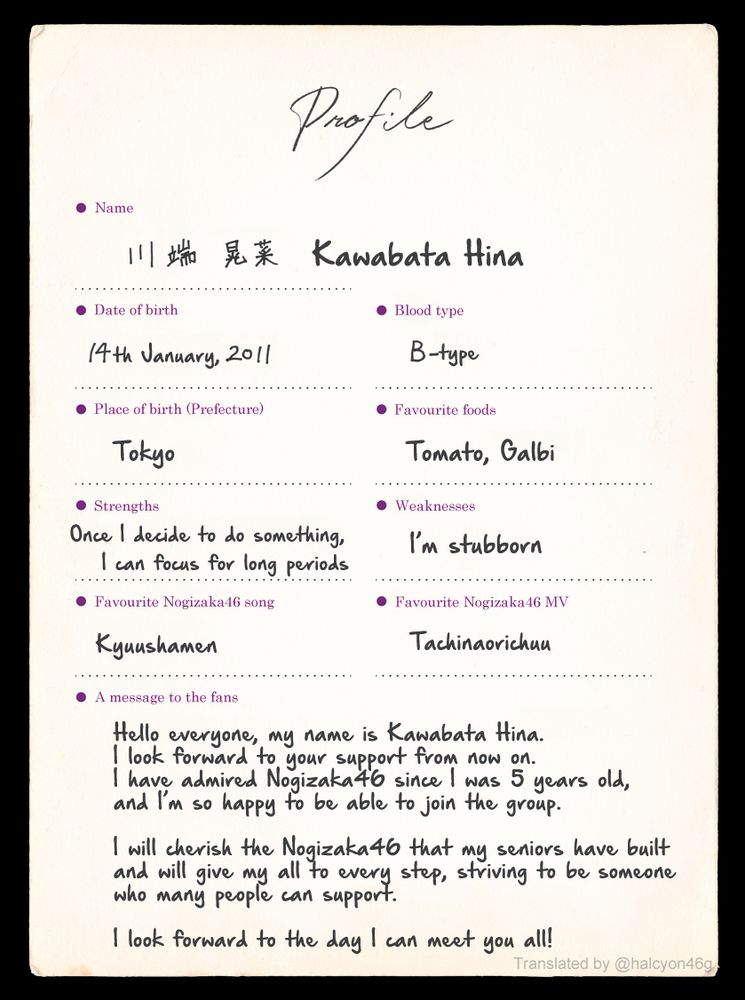 Profile
Name
川端 晃菜 Kawabata Hina
Date of birth
Blood type
14th January, 2011
B-type
Place of birth (Prefecture)
Favourite foods
Tokyo
Tomato, Galbi
Strengths
Weaknesses
Once I decide to do something,
I can focus for long periods
I'm stubborn
Favourite Nogizaka46 song
Favourite Nogizaka46 MV
Kyuushamen
Tachinaorichuu
A message to the fans
Hello everyone, my name is Kawabata Hina.
I look forward to your support from now on.
I have admired Nogizaka46 since I was 5 years old,
and I'm so happy to be able to join the group.
I will cherish the Nogizaka46 that my seniors have built
and will give my all to every step, striving to be someone
who many people can support.
I look forward to the day I can meet you all!
Translated by @halcyon46g